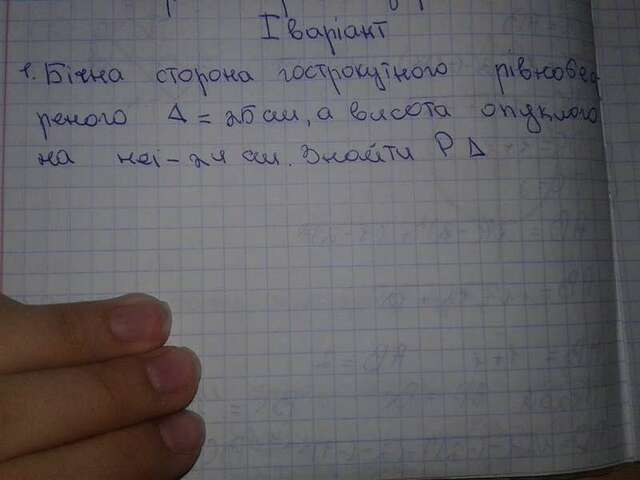 І варіант
1. Бічна сторона гострокутного рівнобед
реного Δ = 25 см, а висота опуклого
на неї - 24 см. Знайти P Δ